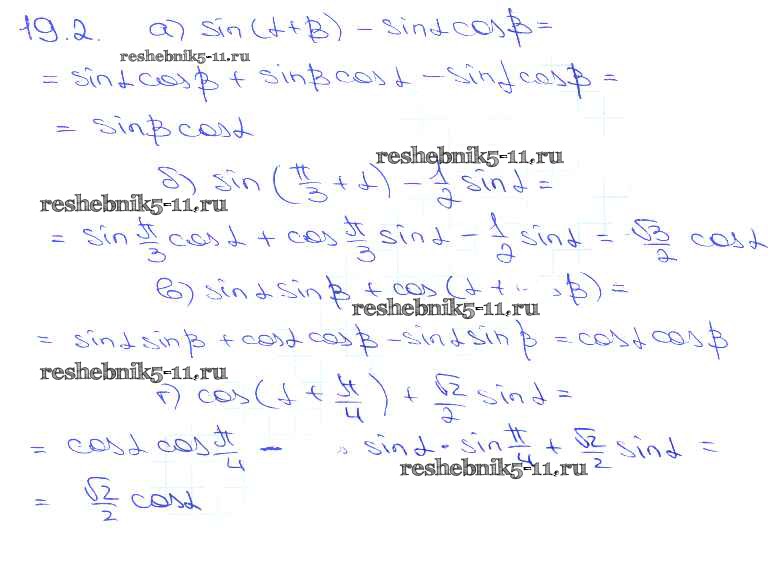 19.2. а) sin(α+β) − sinα cosβ =
reshebnik5-11.ru
= sinα cosβ + sinβ cosα − sinα cosβ =
= sinβ cosα
reshebnik5-11.ru
б) sin(π/3 + α) − 1/2 sinα =
reshebnik5-11.ru
= sin π/3 cosα + cos π/3 sinα − 1/2 sinα = √3/2 cosα
в) sinα sinβ + cos(α + β) =
reshebnik5-11.ru
= sinα sinβ + cosα cosβ − sinα sinβ = cosα cosβ
reshebnik5-11.ru
г) cos(α + π/4) + √2/2 sinα =
= cosα cos π/4 − sinα · sin π/4 + √2/2 sinα =
reshebnik5-11.ru
= √2/2 cosα